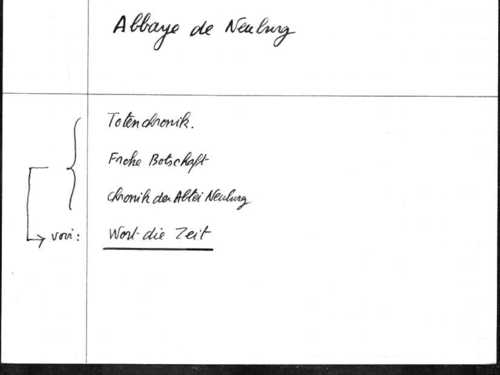 Abbaye de Neuburg
Totenchronik.
Frohe Botschaft
Chronik der Abtei Neuburg
voir: Wort die Zeit